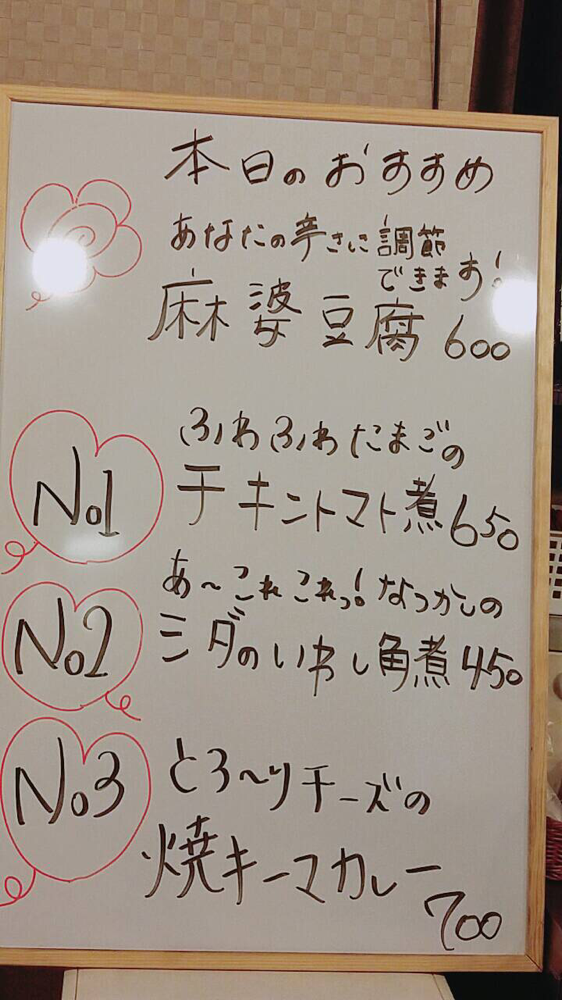 本日のおすすめ
あなたの辛さに調節
できます!
麻婆豆腐 600
No1
ふわふわたまごの
チキントマト煮 650
No2
あ〜これこれっ!なつかしの
ミダのいわし角煮 450
No3
とろ〜りチーズの
焼キーマカレー
700